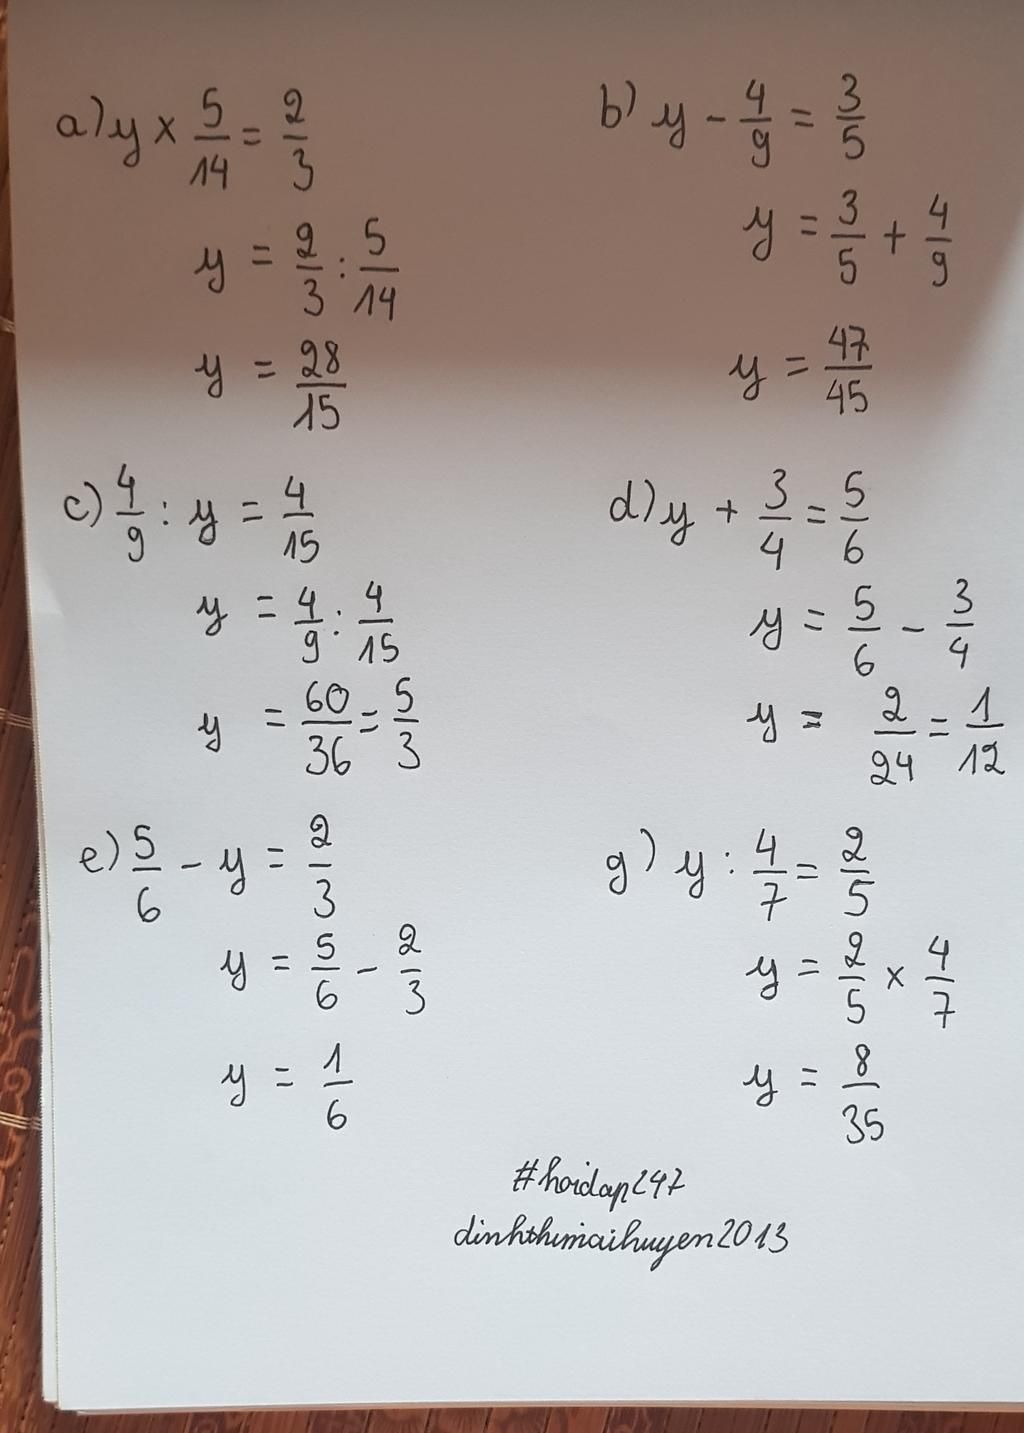 a) y × 5/14 = 2/3
y = 2/3 : 5/14
y = 28/15
b) y - 4/9 = 3/5
y = 3/5 + 4/9
y = 47/45
c) 4/9 : y = 4/15
y = 4/9 : 4/15
y = 60/36 = 5/3
d) y + 3/4 = 5/6
y = 5/6 - 3/4
y = 2/24 = 1/12
e) 5/6 - y = 2/3
y = 5/6 - 2/3
y = 1/6
g) y : 4/7 = 2/5
y = 2/5 × 4/7
y = 8/35
#hoidap247
dinhthimaihuyen2013